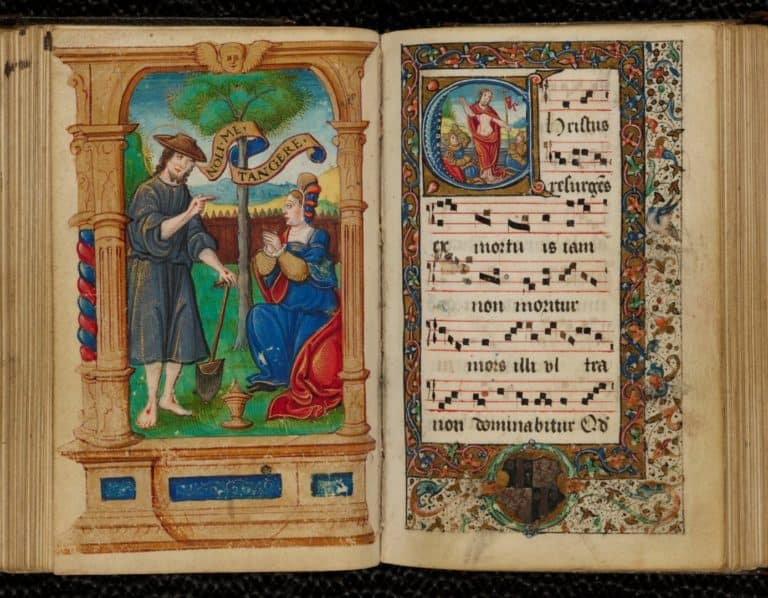 NOLI·ME·
TANGERE·
Christus
resurgēs
ex mortu is iam
non moritur
mors illi vl tra
non dominabitur Qd